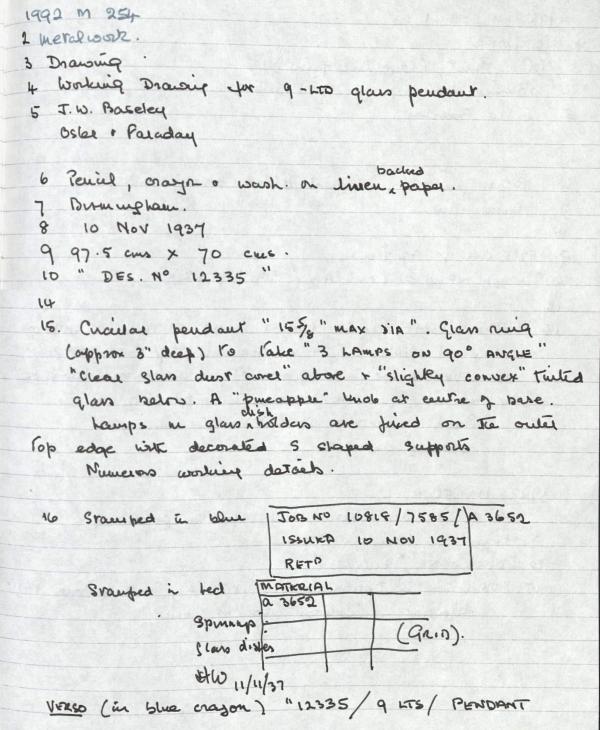 1992 M 254
2 metalwork.
3 Drawing
4 Working Drawing for 9-LTD glass pendant.
5 J.W. Baseley
Osler + Faraday
6 Pencil, crayon + wash. on linen backed paper.
7 Birmingham.
8 10 NOV 1937
9 97.5 cms x 70 cms.
10 " DES. No 12335 "
14
15. Circular pendant "15 5/8" MAX DIA". Glass ring
(approx 3" deep) to take "3 LAMPS ON 90° ANGLE"
"Clear glass dust cover" above + "slightly convex" tinted
glass below. A "pineapple" knob at centre of base.
Lamps in glass dish holders are fixed on the outer
top edge with decorated S shaped supports
Numerous working details.
16 Stamped in blue
JOB NO 10818/7585/A 3652
ISSUED 10 NOV 1937
RETD
Stamped in red
MATERIAL
a 3652
Spinnings
Glass dishes
(GRID).
11/11/37
VERSO (in blue crayon) "12335/ 9 LTS/ PENDANT